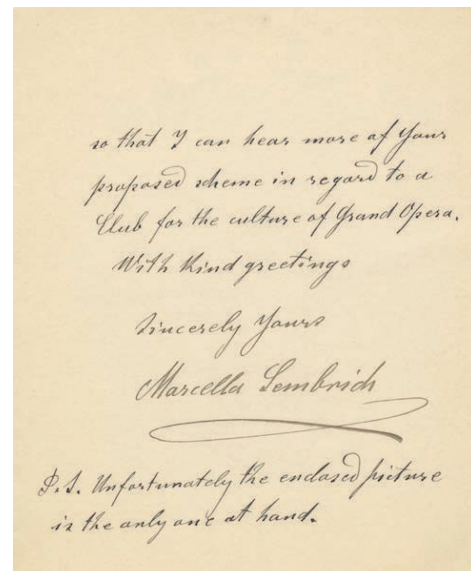 so that I can hear more of Your
proposed scheme in regard to a
Club for the culture of Grand Opera.
With Kind greetings
Sincerely Yours
Marcella Sembrich
P.S. Unfortunately the enclosed picture
is the only one at hand.